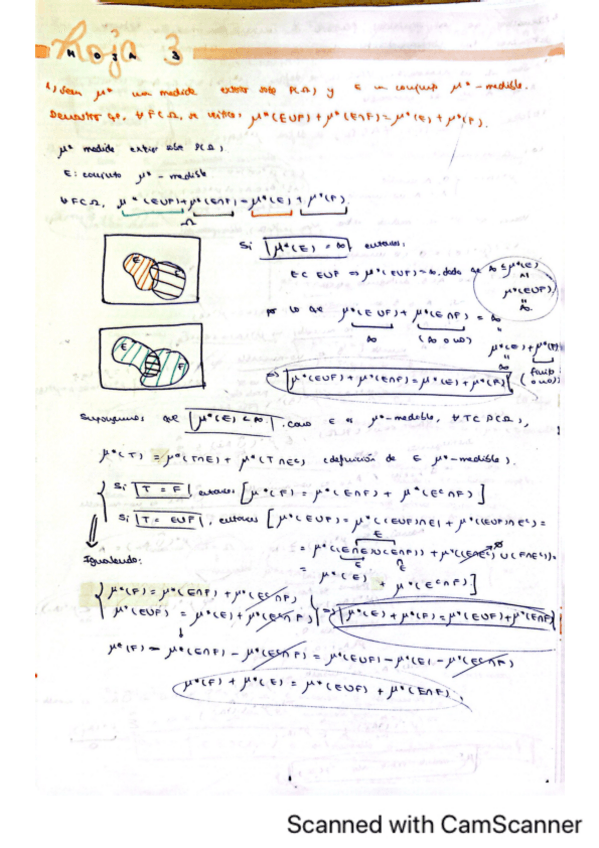 Hoja 3
HOJA 3
1) Sean μ* una medida exterior sobre P(Ω) y E un conjunto μ*-medible.
Demostrar que, ∀F⊂Ω, se verifica: μ*(E∪F)+μ*(E∩F)=μ*(E)+μ*(F).
μ* medida exterior sobre P(Ω).
E: conjunto μ*-medible
∀F⊂Ω, μ*(E∪F)+μ*(E∩F)=μ*(E)+μ*(F)
Ω
E
Si μ*(E)=∞, entonces:
E⊂E∪F ⇒ μ*(E∪F)=∞, dado que ∞≤μ*(E)
μ*(E∪F)
∞
por lo que μ*(E∪F)+μ*(E∩F)=∞
∞ (∞ o no)
μ*(E)+μ*(F)
∞ finito
(o no)
E F
⇒ μ*(E∪F)+μ*(E∩F)=μ*(E)+μ*(F)
Supongamos que μ*(E)<∞, como E es μ*-medible, ∀T⊂P(Ω),
μ*(T)=μ*(T∩E)+μ*(T∩Eᶜ) (definición de E μ*-medible).
Si T=F, entonces [μ*(F)=μ*(E∩F)+μ*(Eᶜ∩F)]
Si T=E∪F, entonces [μ*(E∪F)=μ*((E∪F)∩E)+μ*((E∪F)∩Eᶜ)=
E
=μ*((E∩E)∪(E∩F))+μ*((E∩Eᶜ)∪(F∩Eᶜ))=
E
=μ*(E)+μ*(Eᶜ∩F)]
Igualando:
μ*(F)=μ*(E∩F)+μ*(Eᶜ∩F)
μ*(E∪F)=μ*(E)+μ*(Eᶜ∩F) ⇒ μ*(E)+μ*(F)=μ*(E∪F)+μ*(E∩F)
μ*(F)-μ*(E∩F)-μ*(Eᶜ∩F)=μ*(E∪F)-μ*(E)-μ*(Eᶜ∩F)
μ*(F)+μ*(E)=μ*(E∪F)+μ*(E∩F).
Scanned with CamScanner